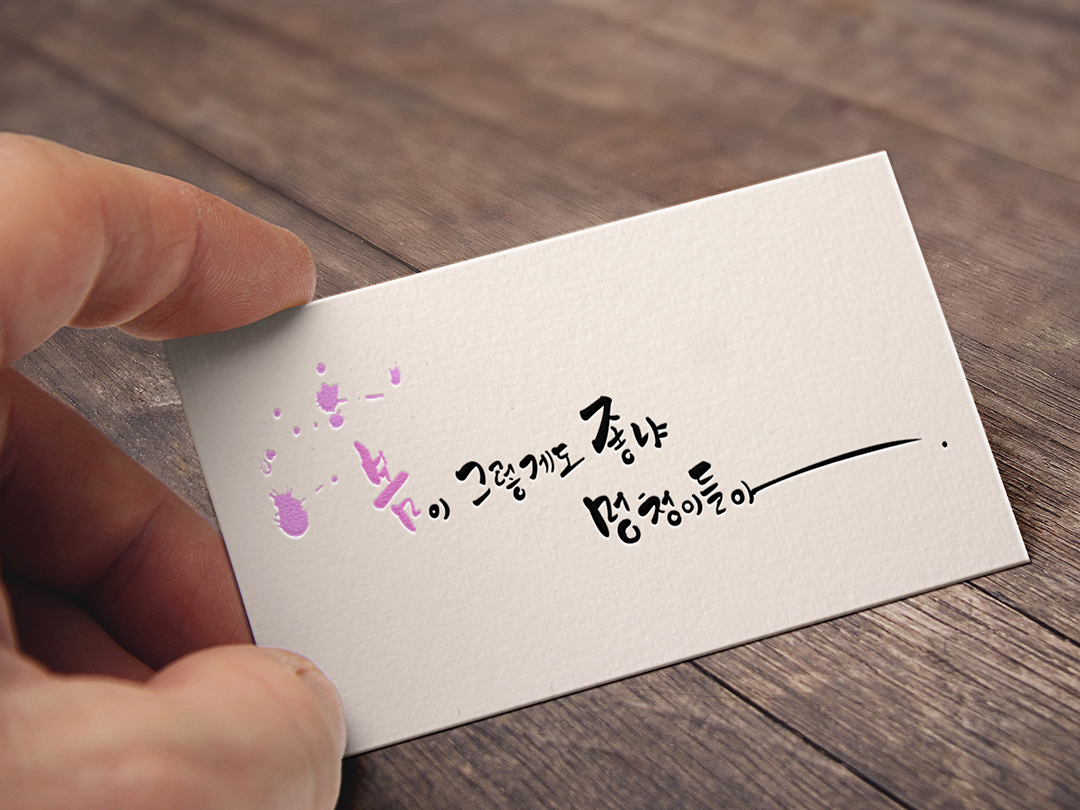 봄이 그렇게도 좋냐
멍청이들아.